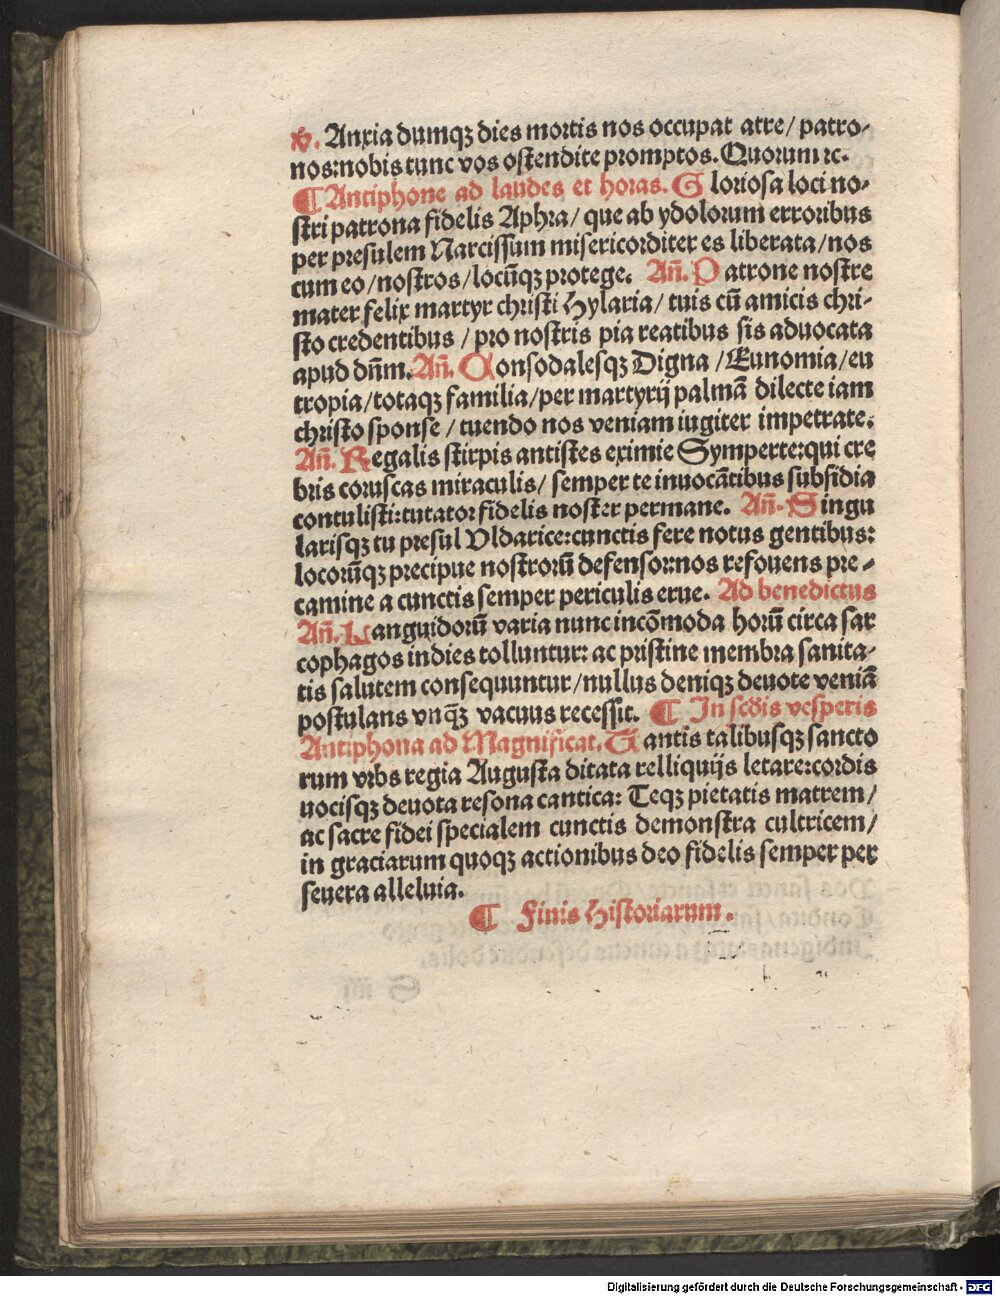 ℣. Anxia dumqꝫ dies mortis nos occupat atre/ patro-
nos:nobis tunc vos ostendite promptos. Quorum ꝛc.
¶ Antiphone ad laudes et horas. Gloriosa loci no-
stri patrona fidelis Aphra/ que ab ydolorum erroribus
per presulem Narcissum misericorditer es liberata/nos
cum eo/nostros/locūqꝫ protege. Añ. Patrone nostre
mater felix martyr christi Hylaria/ tuis cū amicis chri-
sto credentibus /pro nostris pia reatibus sis aduocata
apud dñm. Añ. Consodalesqꝫ Digna /Eunomia/eu
tropia/totaqꝫ familia/per martyrij palmā dilecte iam
christo sponse /tuendo nos veniam iugiter impetrate.
Añ. Regalis stirpis antistes eximie Symperte:qui cre
bris coruscas miraculis/ semper te inuocātibus subsidia
contulisti:tutator fidelis noster permane. Añ. Singu
larisqꝫ tu presul Uldarice:cunctis fere notus gentibus:
locorūqꝫ precipue nostrorū defensor:nos refouens pre-
camine a cunctis semper periculis erue. Ad benedictus
Añ. Languidorū varia nunc incōmoda horū circa sar
cophagos indies tolluntur: ac pristine membra sanita-
tis salutem consequuntur/nullus deniqꝫ deuote veniā
postulans vnq̄ꝫ vacuus recessit. ¶ In secūdis vesperis
Antiphona ad Magnificat. Tantis talibusqꝫ sancto
rum vrbs regia Augusta ditata relliquijs letare:cordis
uocisqꝫ deuota resona cantica: Teqꝫ pietatis matrem/
ac sacre fidei specialem cunctis demonstra cultricem/
in graciarum quoqꝫ actionibus deo fidelis semper per
seuera alleluia.
¶ Finis Historiarum.
Digitalisierung gefördert durch die Deutsche Forschungsgemeinschaft - DFG